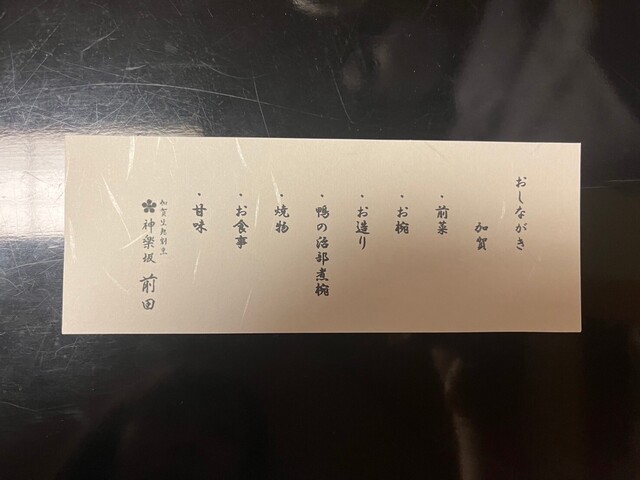 おしながき
加賀
・前菜
・お椀
・お造り
・鴨の治部煮椀
・焼物
・お食事
・甘味
神楽坂 前田